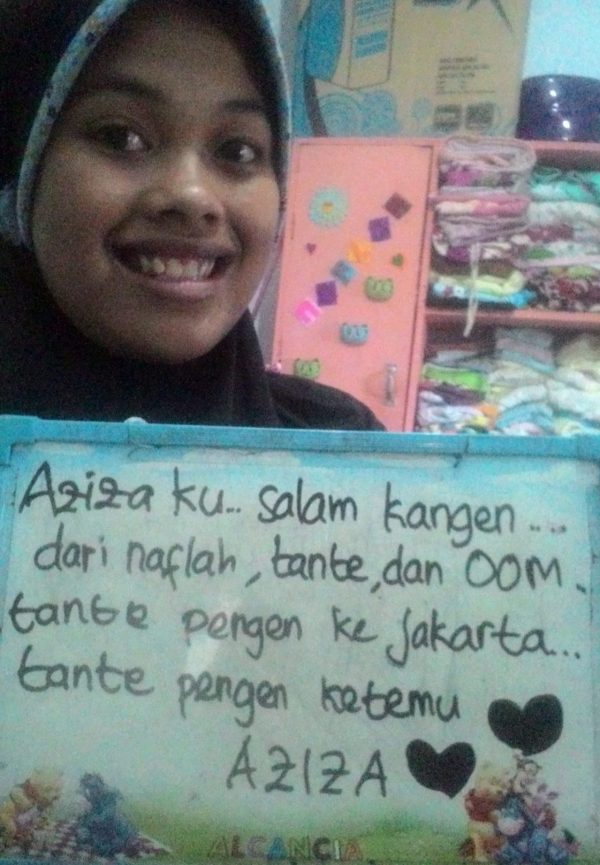 Aziza ku.. salam kangen....
dari naflah, tante, dan OOM.
tante pengen ke Jakarta...
tante pengen ketemu
AZIZA
ALCANCIA